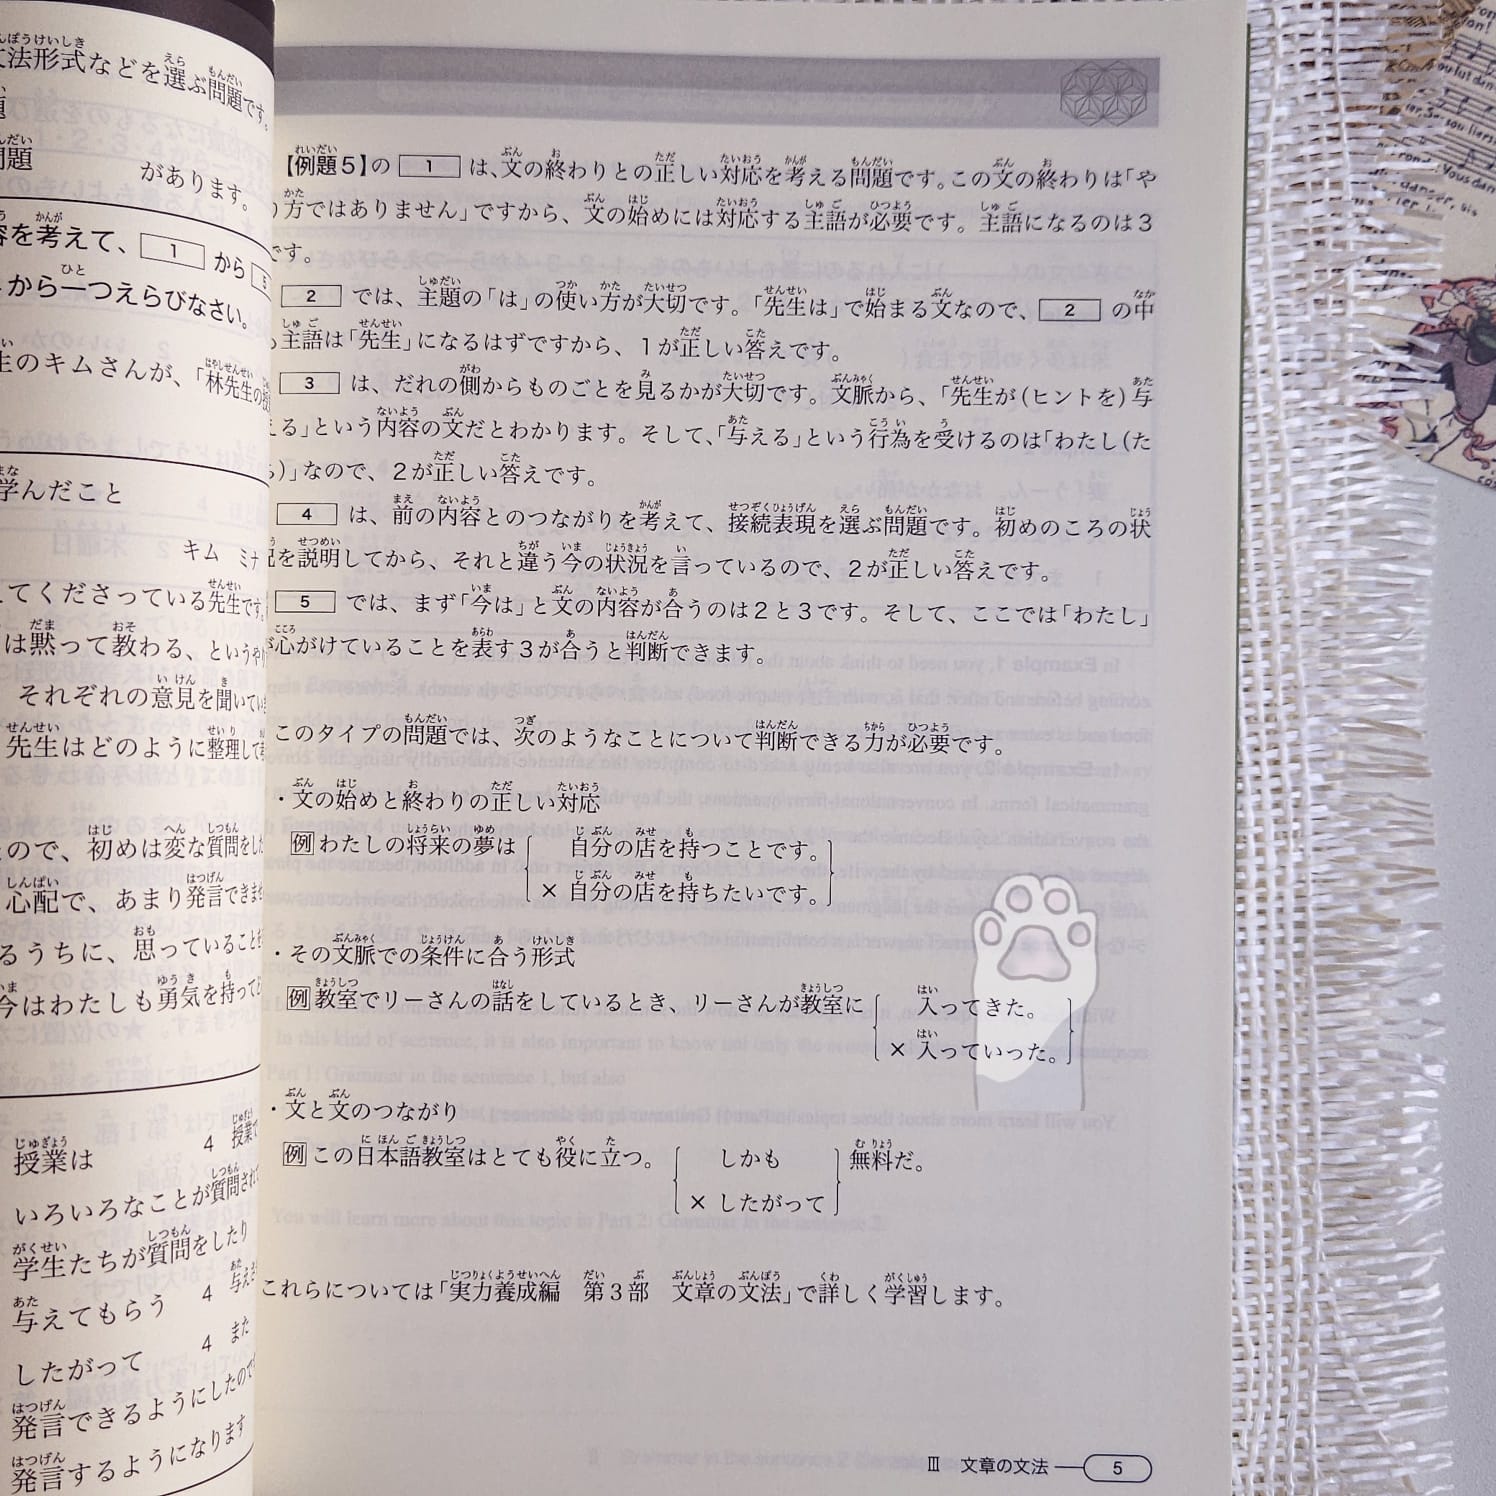 文法形式などを選ぶ問題です。
題
問題　があります。
を考えて、 1 から 5
から一つえらびなさい。
のキムさんが、「林先生の
学んだこと
キム　ミナ
てくださっている先生です。
は黙って教わる、というやり
それぞれの意見を聞いて
先生はどのように整理して
ので、初めは変な質問をした
心配で、あまり発言できま
るうちに、思っていることを
今はわたしも勇気を持って
授業は　4　授業で
いろいろなことが質問され
学生たちが質問をしたり
与えてもらう　4　与え
したがって　4　また
発言できるようにしたので
発言するようになります
【例題5】の 1 は、文の終わりとの正しい対応を考える問題です。この文の終わりは「や
り方ではありません」ですから、文の始めには対応する主語が必要です。主語になるのは3
です。
2 では、主題の「は」の使い方が大切です。「先生は」で始まる文なので、 2 の中
主語は「先生」になるはずですから、1が正しい答えです。
3 は、だれの側からものごとを見るかが大切です。文脈から、「先生が(ヒントを)与
える」という内容の文だとわかります。そして、「与える」という行為を受けるのは「わたし(た
ち)」なので、2が正しい答えです。
4 は、前の内容とのつながりを考えて、接続表現を選ぶ問題です。初めのころの状
況を説明してから、それと違う今の状況を言っているので、2が正しい答えです。
5 では、まず「今は」と文の内容が合うのは2と3です。そして、ここでは「わたし」
が心がけていることを表す3が合うと判断できます。
このタイプの問題では、次のようなことについて判断できる力が必要です。
・文の始めと終わりの正しい対応
例 わたしの将来の夢は 自分の店を持つことです。
× 自分の店を持ちたいです。
・その文脈での条件に合う形式
例 教室でリーさんの話をしているとき、リーさんが教室に 入ってきた。
× 入っていった。
・文と文のつながり
例 この日本語教室はとても役に立つ。 しかも 無料だ。
× したがって
これらについては「実力養成編　第3部　文章の文法」で詳しく学習します。
Ⅲ　文章の文法 5